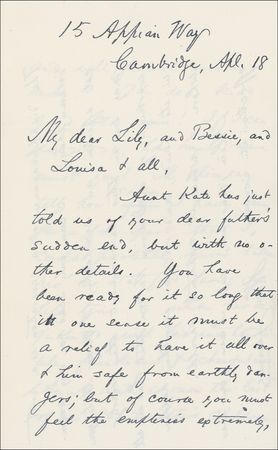 15 Appian Way
Cambridge, Apl. 18
My dear Lily, and Bessie, and
Louisa & all,
Aunt Kate has just
told us of your dear father's
sudden end, but with no o-
ther details. You have
been ready for it so long that
in one sense it must be
a relief to have it all over
& him safe from earthly dan-
gers; but of course you must
feel the emptiness extremely,